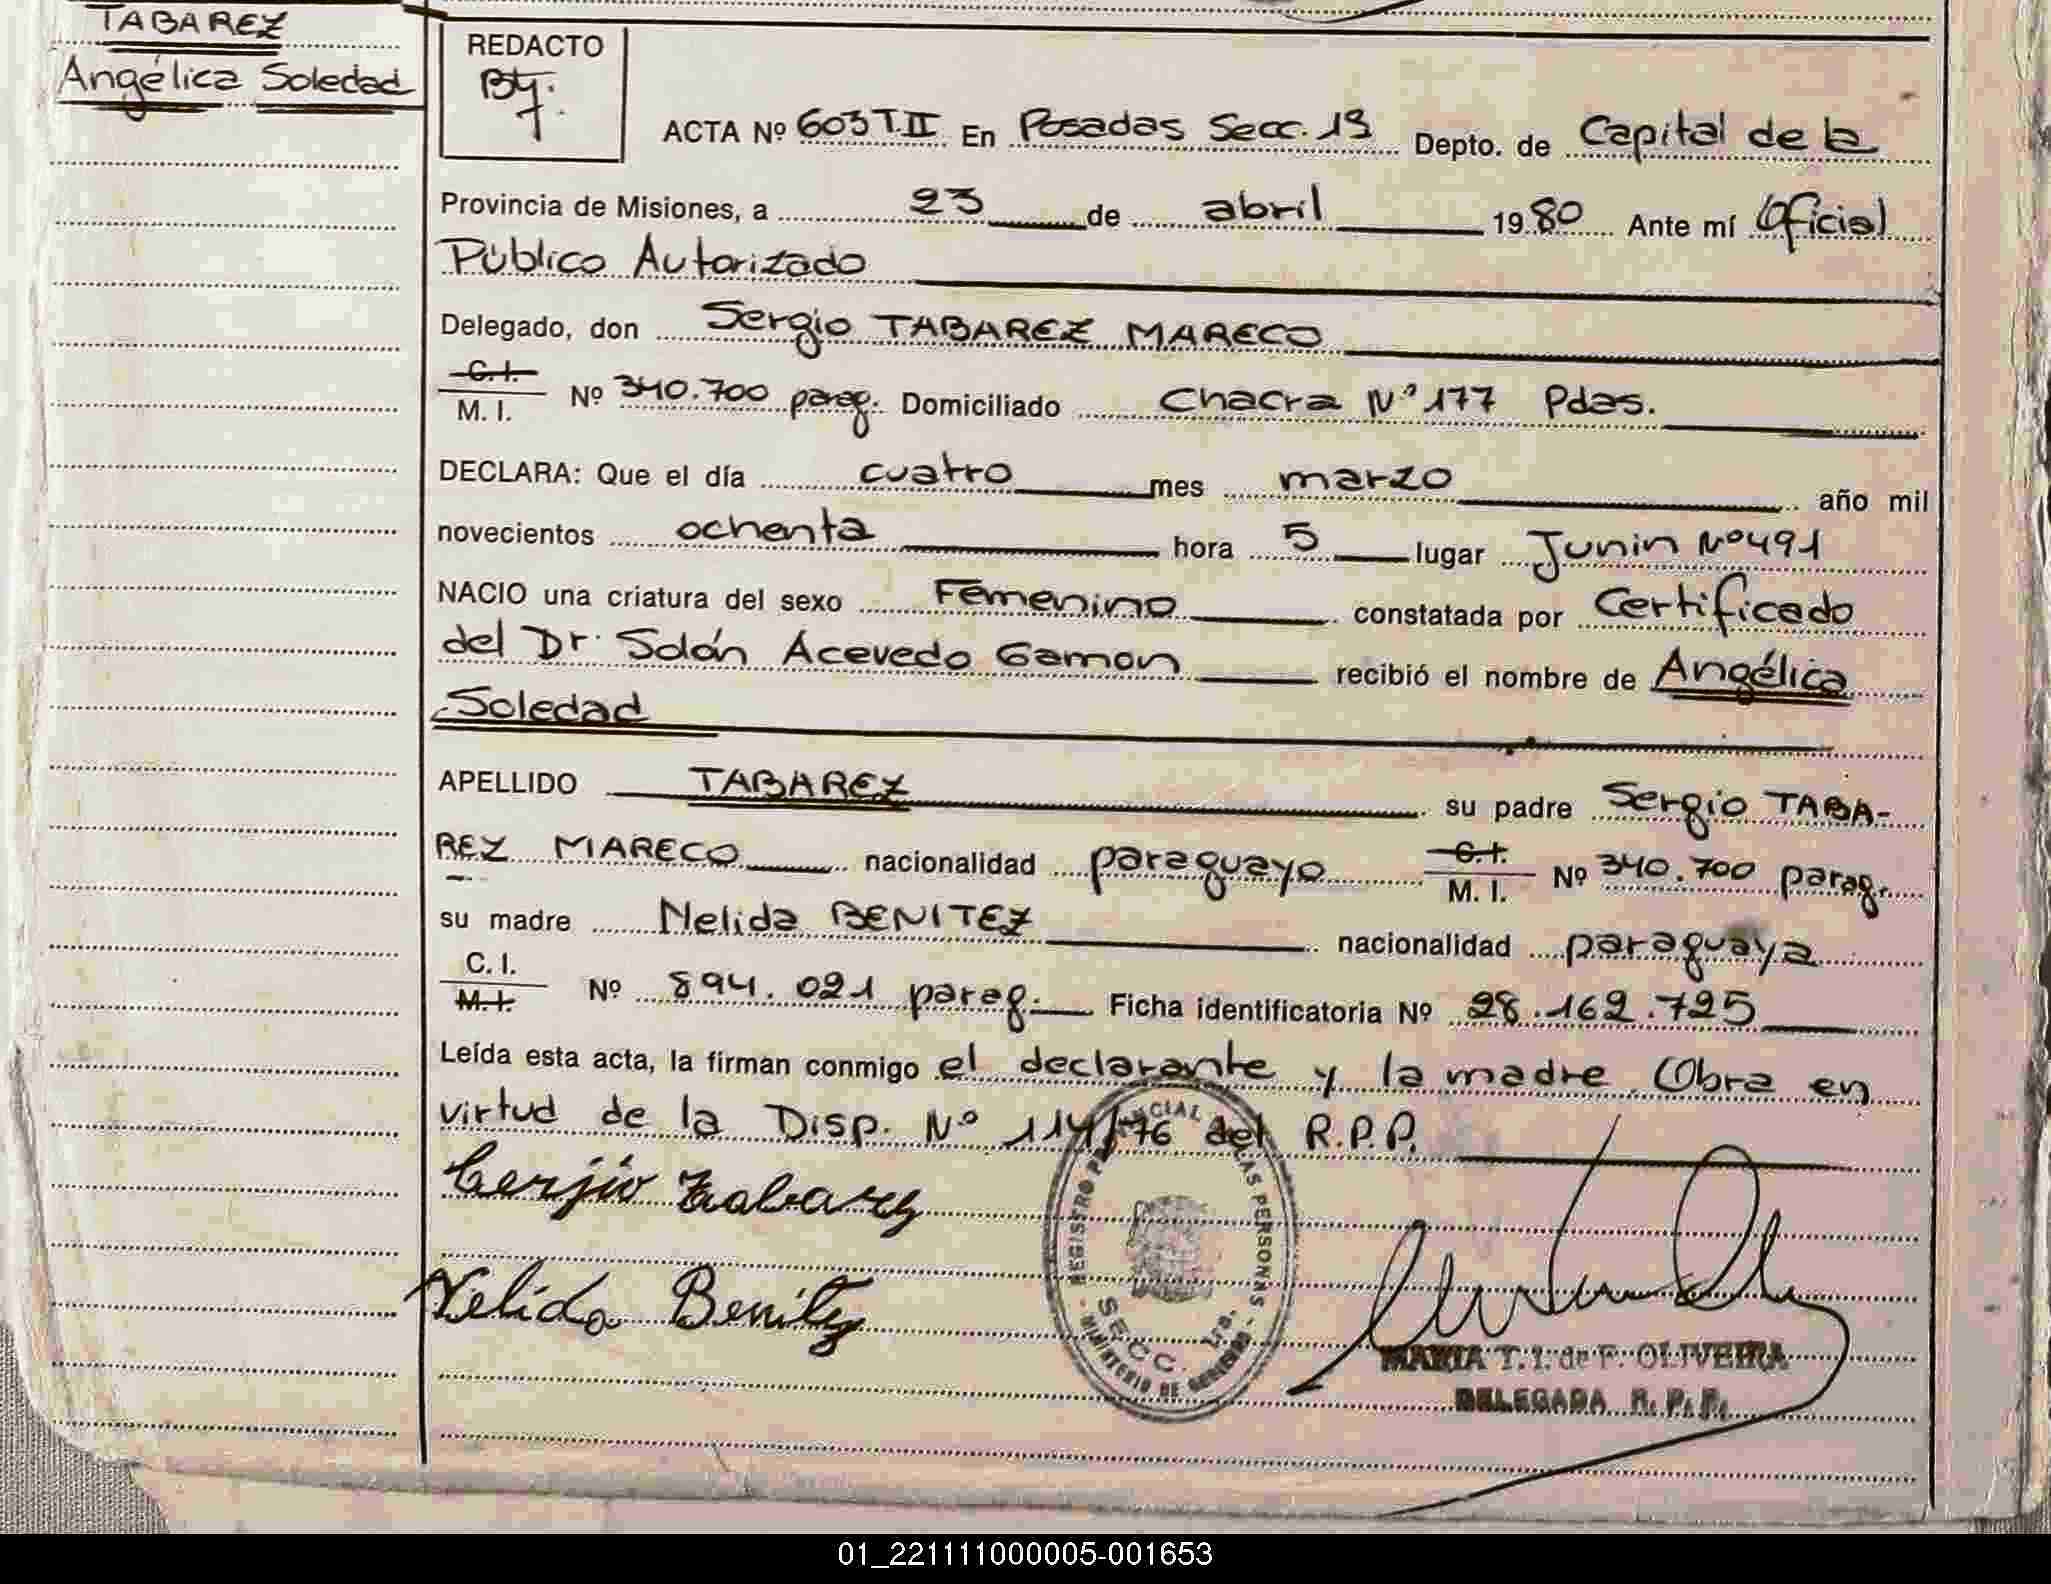 TABAREZ
Angélica Soledad
REDACTO
ACTA Nº 603 T.II En Posadas Secc. 1ª Depto. de Capital de la
Provincia de Misiones, a 23 de abril 1980 Ante mí Oficial
Público Autorizado
Delegado, don Sergio TABAREZ MARECO
C.I.
M. I. Nº 340.700 parag. Domiciliado Chacra Nº 177 Pdas.
DECLARA: Que el día cuatro mes marzo año mil
novecientos ochenta hora 5 lugar Junin Nº 491
NACIO una criatura del sexo Femenino constatada por Certificado
del Dr. Solón Acevedo Gamon recibió el nombre de Angélica
Soledad
APELLIDO TABAREZ su padre Sergio TABA-
REZ MARECO nacionalidad paraguayo C.I. M. I. Nº 340.700 parag.
su madre Nelida BENITEZ nacionalidad paraguaya
C. I.
M.I. Nº 894.021 parag. Ficha identificatoria Nº 28.162.725
Leída esta acta, la firman conmigo el declarante y la madre Obra en
virtud de la Disp. Nº 114/76 del R.P.P.
Cerjio Tabarez
Nelida Benitez
REGISTRO PROVINCIAL DE LAS PERSONAS
MINISTERIO DE GOBIERNO
SECC. 1ra.
MARIA T. I. de F. OLIVEIRA
DELEGADA R. P. P.
01_221111000005-001653